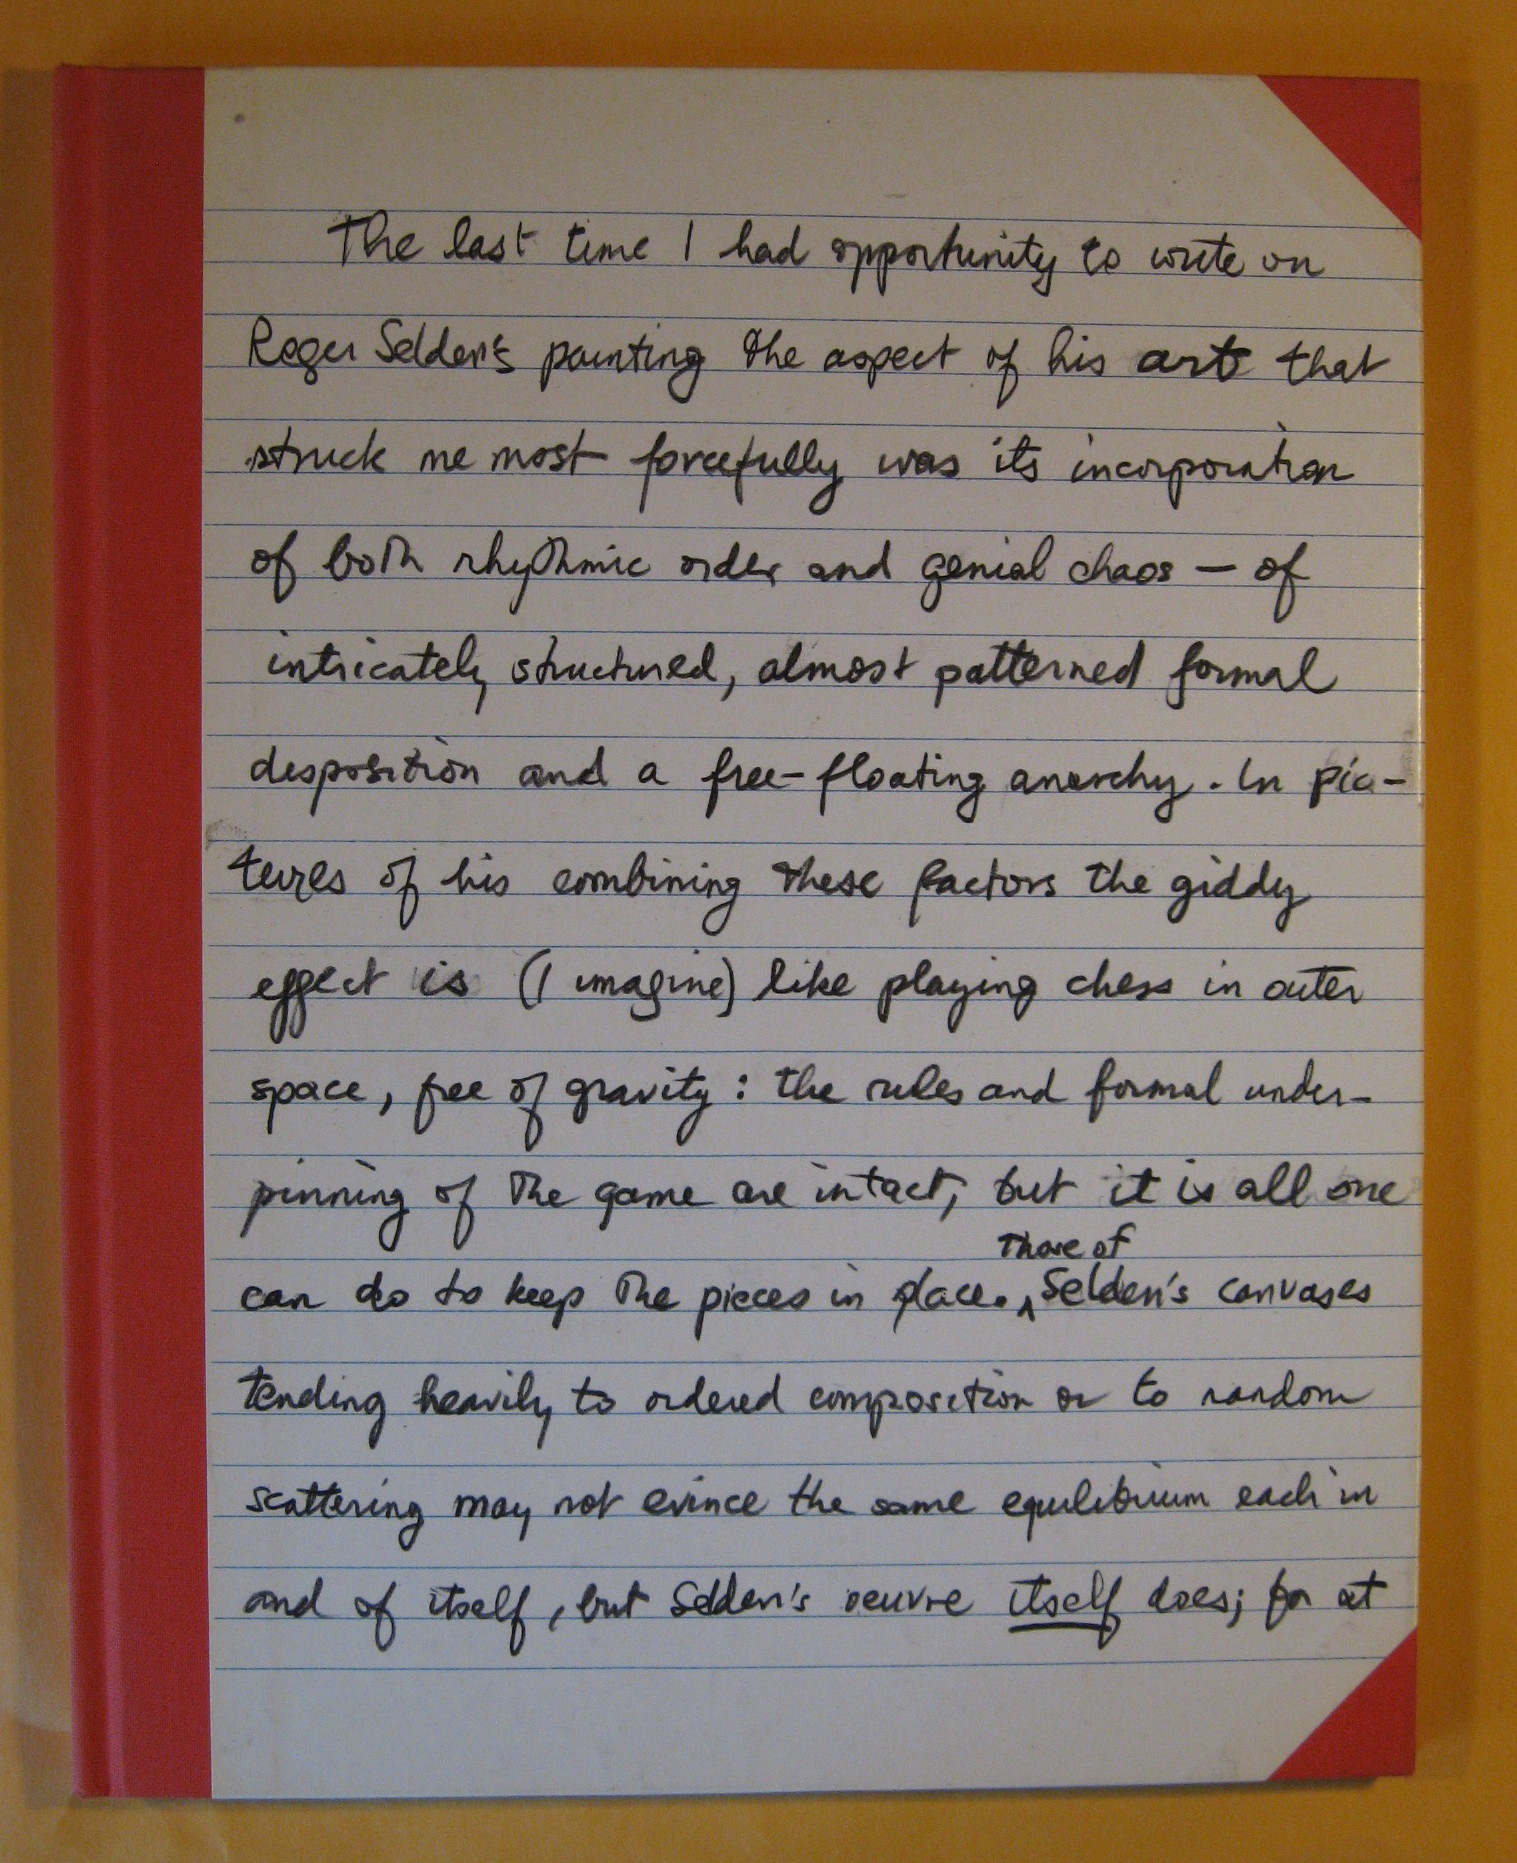 The last time I had opportunity to write on
Roger Selden's painting the aspect of his art that
struck me most forcefully was its incorporation
of both rhythmic order and genial chaos — of
intricately structured, almost patterned formal
disposition and a free-floating anarchy. In pic-
tures of his combining these factors the giddy
effect is (I imagine) like playing chess in outer
space, free of gravity: the rules and formal under-
pinning of the game are intact, but it is all one
those of
can do to keep the pieces in place. ^ Selden's canvases
tending heavily to ordered composition or to random
scattering may not evince the same equilibrium each in
and of itself, but Selden's oeuvre itself does; for at